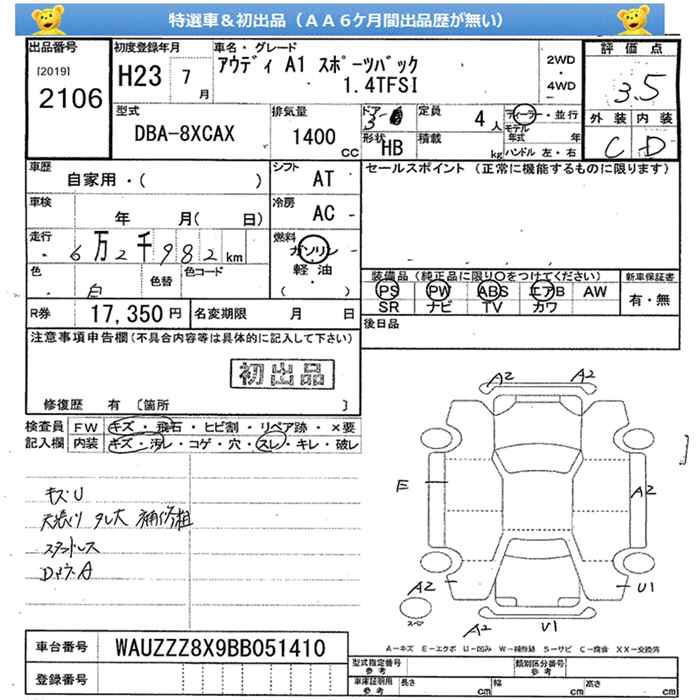 特選車＆初出品（ＡＡ６ケ月間出品歴が無い）
出品番号 初度登録年月 車名・グレード 評価点
[2019] H23 7月 アウディ A1 スポーツバック 2WD・4WD 3.5
2106 1.4TFSI
型式 排気量 ドア 定員 4人 ディーラー・並行 外装 内装
DBA-8XCAX 1400cc 3- 形状 HB 積載 kg モデル年式 年 C D
ハンドル 左・右
車歴 シフト セールスポイント（正常に機能するものに限ります）
自家用・( ) AT
車検 冷房
年 月( 日) AC
走行 燃料
6万2千982km ガソリン
軽油
・( )
色 色替 色コード 装備品（純正品に限り○をつけてください） 新車保証書
白 PS PW ABS エアB AW 有・無
SR ナビ TV カワ
R券 17,350円 名変期限 月 日 後日品
注意事項申告欄(不具合内容等は具体的に記入して下さい)
初出品
修復歴 有 〔箇所 〕
検査員 FW キズ・飛石・ヒビ割・リペア跡・×要
記入欄 内装 キズ・汚レ・コゲ・穴・スレ・キレ・破レ
A2 A2
E A2
キズU
天張り タレ大 補修粗
スタットレス
A2 U1
A2 U1
車台番号 WAUZZZ8X9BB051410
登録番号
A－キズ E－エクボ U－凹み W－補修跡 S－サビ C－腐食 XX－交換済
型式指定番号 参考 類別区分番号 参考
車庫証明用 参考 長さ cm 幅 cm 高さ cm